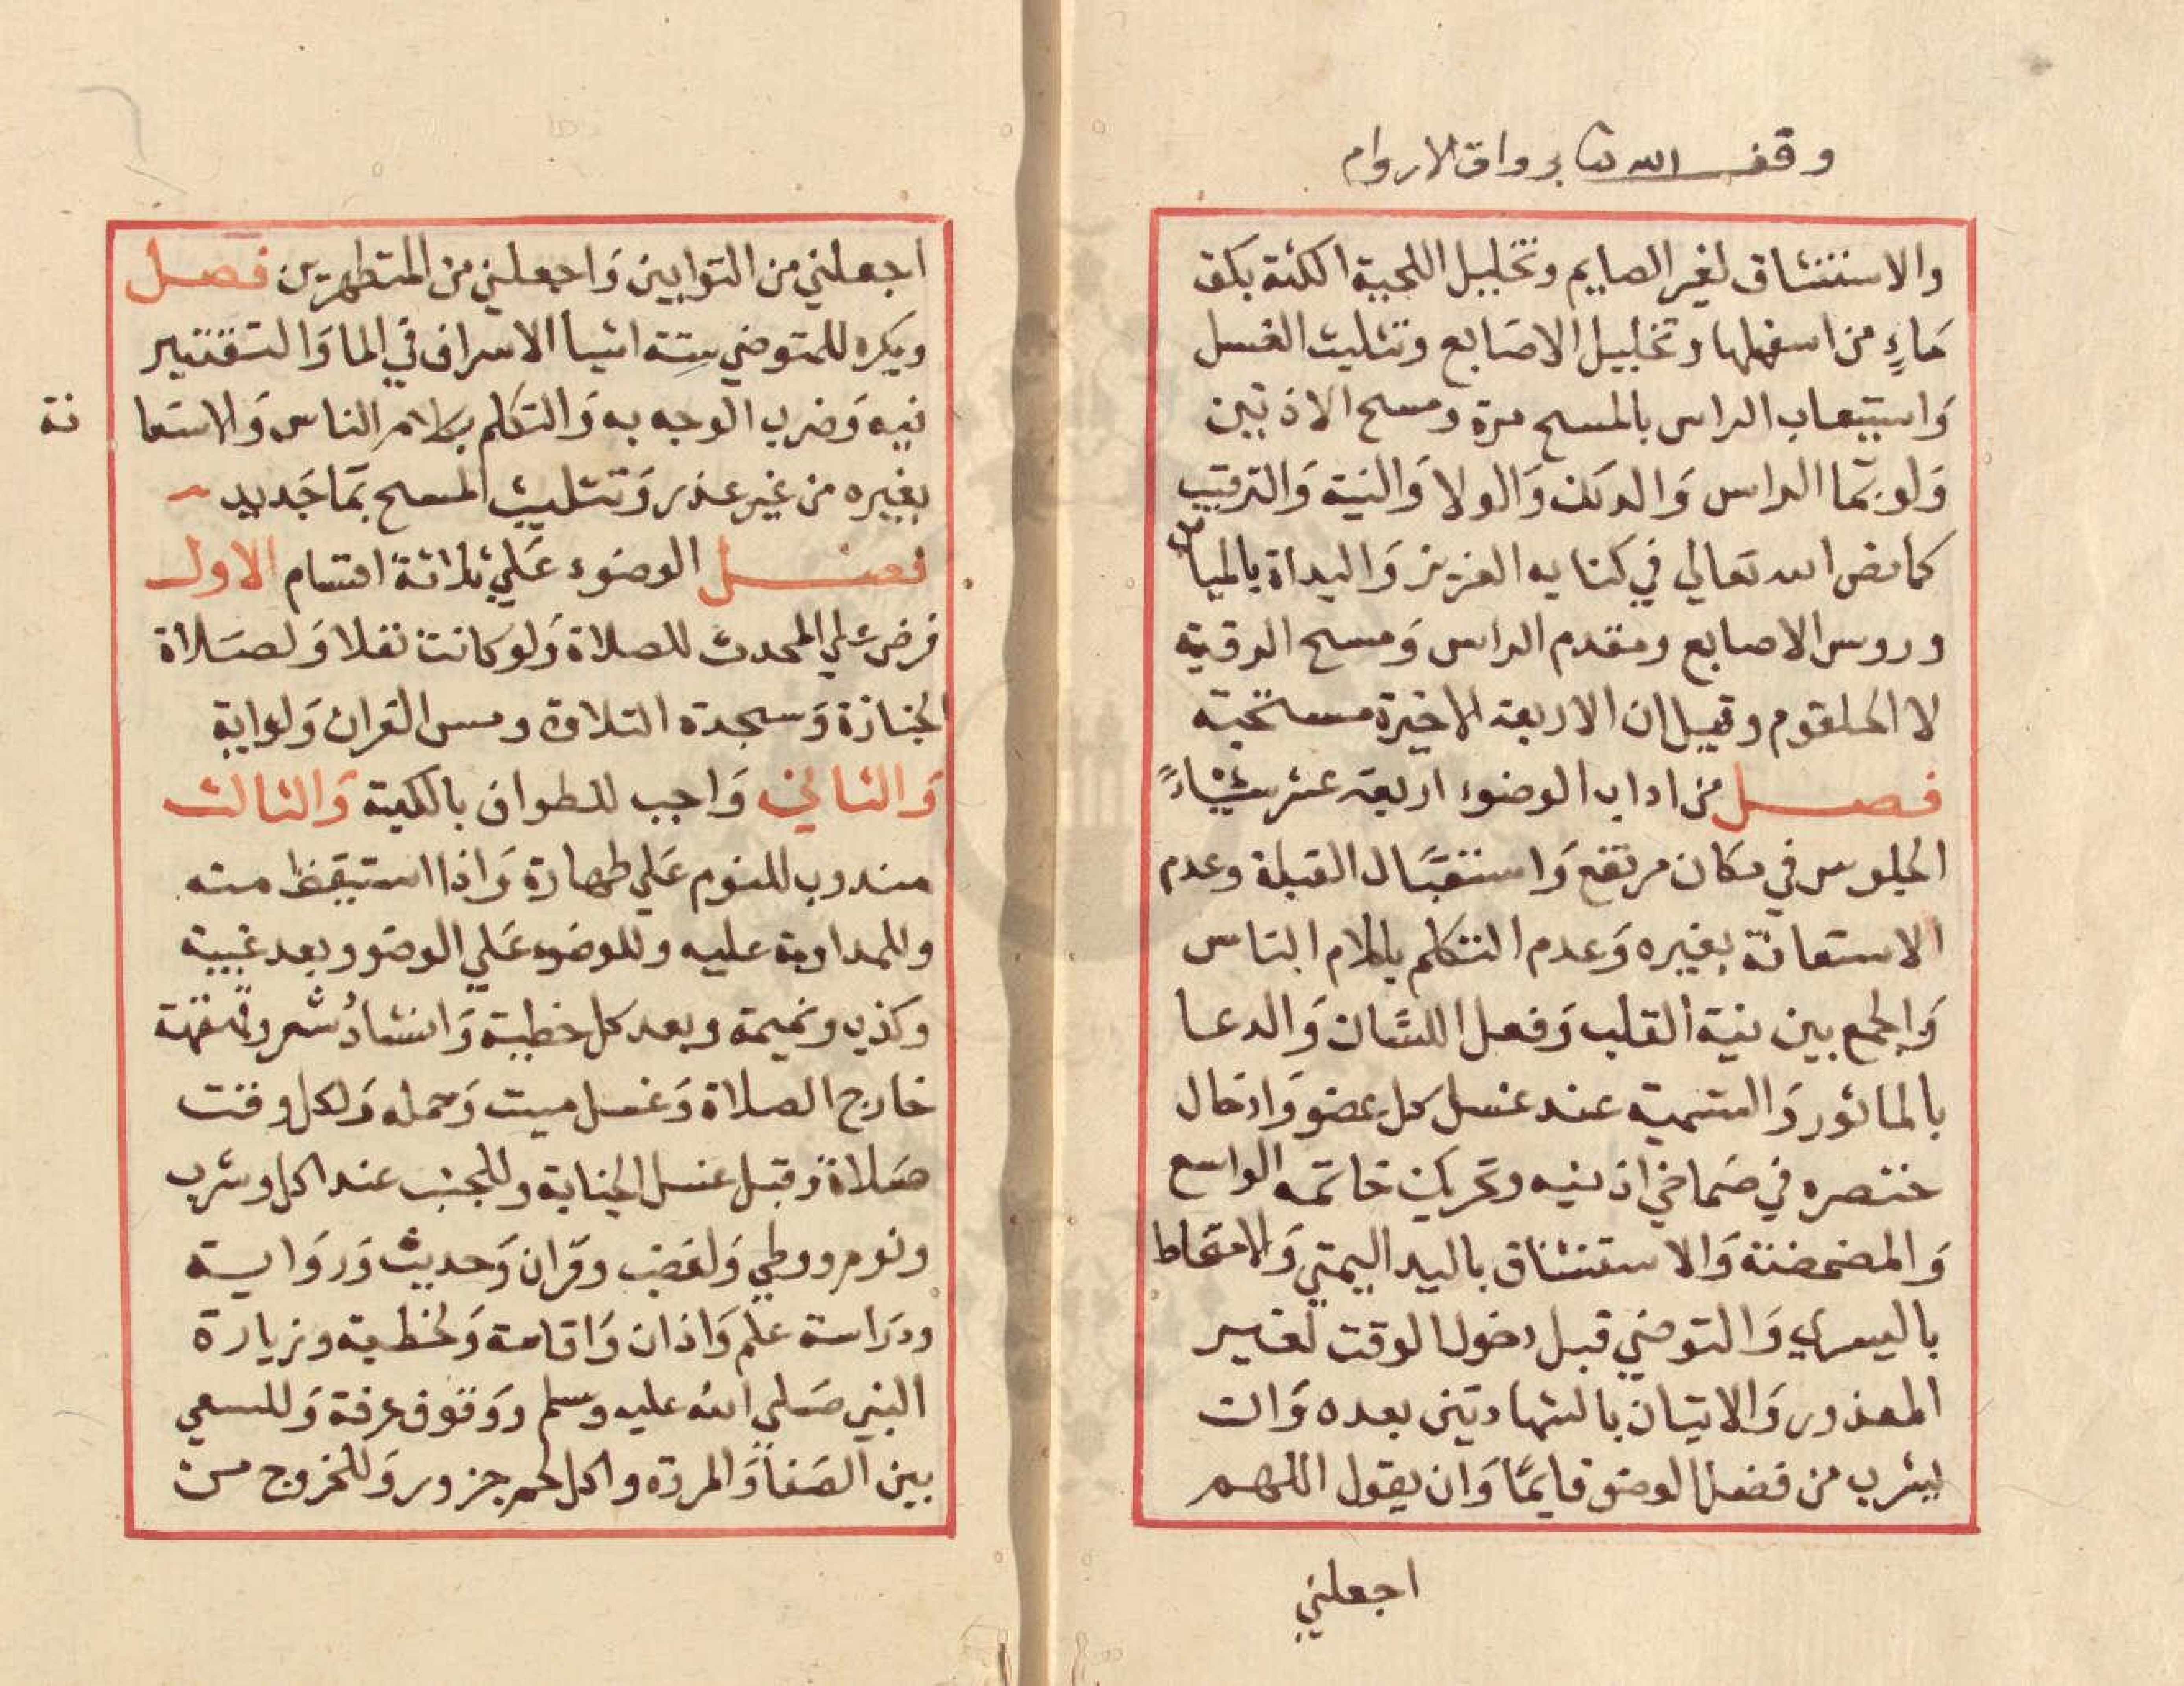 وقف لله تعا برواق الاروام
والاستنشاق لغير الصايم وتخليل اللحية الكثة بكف
مَاءٍ من اسفلها وتخليل الاصَابع وتثليث الغسل
وَاستيعاب الراس بالمسح مرة ومسح الاذنين
وَلو بمَا الراس وَالدلك وَالولا وَالنية وَالترتيب
كما نص الله تعالي في كتابه العزيز وَالبداة بالميامن
وروس الاصابع ومقدم الراس وَمسح الرقبة
لا الحلقوم وقيل ان الاربعة الاخيرة مستحبة
فصل من اداب الوضوء اربعة عشر شياءً
الجلوس في مكان مرتفع وَاستقبَال القبلة وعدم
الاستعانة بغيره وَعدم التكلم بكلام الناس
وَالجمع بين نية القلب وَفعل اللسَان وَالدعا
بالماثور وَالتسمية عند غسل كل عضو وَادخال
خنصره في صَماخي اذنيه وتحريك خاتمه الواسع
وَالمضمضة وَالاستنشاق باليد اليمني وَالامتخاط
باليسري وَالتوضي قبل دخول الوقت لغير
المعذور وَالاتيان بالشهادتين بعده وَان
يشرب من فضل الوضو قايمًا وَان يقول اللهم
اجعلني
اجعلني من التوابين وَاجعلني من المتطهرين فصل
ويكره للمتوضي سِتة اشيا الاسراف في الما وَالتقتير
فيه وَضرب الوجه به وَالتكلم بكلام الناس وَالاستعا نة
بغيره من غير عذر وَتثليث المسح بمَا جَديد
فصل الوضوء عَلي ثلاثة اقسام الاول
فرض علي المحدث للصلاة وَلو كانت نفلا وَلصَلاة
الجنازة وَسجدة التلاوة ومس القران وَلو اية
وَالثاني وَاجب للطواف بالكعبة وَالثالث
مندوب للنوم عَلي طهارة وَاذا استيقظ منه
وللمداومة عليه وللوضوء عَلي الوضوء وبعد غيبة
وكذب ونميمة وبعد كل خطيئة وَانشادُ شعر وقهقهة
خارج الصلاة وَغسل ميت وَحمله وَلكل وقت
صَلاة وقبل غسل الجنابة وللجنب عند اكل وشرب
ونوم ووطي وَلغضب وقران وَحديث وَروَاية
ودرَاسة علم وَاذان وَاقامة وَلخطبة وزيارة
النبي صَلي الله عليه وسلم ووَقوف عرفة وَللسعي
بين الصَفا وَالمروة واكل لحم جزور وَللخروج من